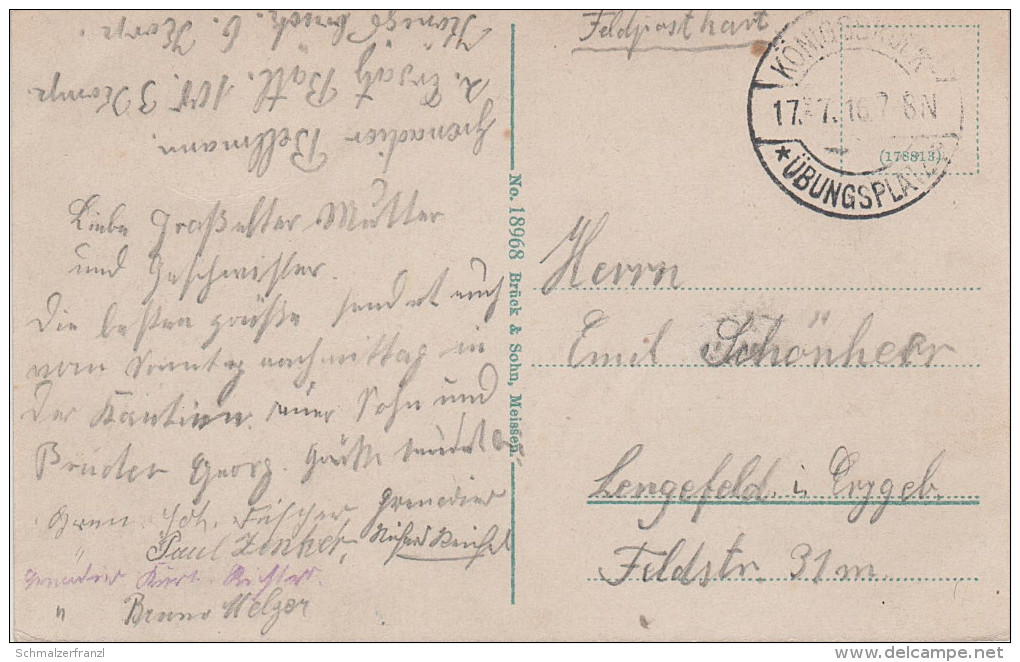 Feldpostkart
KÖNIGSBRÜCK
17. 7. 16. 7-8N
* ÜBUNGSPLATZ
(178813)
Grenadier Bellmann.
2. Ersatz Batl. 101. 3 Komp.
Königsbrück. 6. Korp.
Liebe Großelter Mutter
und Geschwister.
Die besten Grüße sendet euch
vom Sonntag nachmittag in
der Kantine euer Sohn und
Bruder Georg. Grüße sendet
Gren. Fischer Grenadier
Paul Zenker, Richard Reichel
Grenadier Kurt Richter.
" Bruno Melzer
No. 18968 Brück & Sohn, Meissen.
Herrn
Emil Schönherr
Lengefeld. i Erzgeb.
Feldstr. 31 m.
Schmalzerfranzl
www.delcampe.net